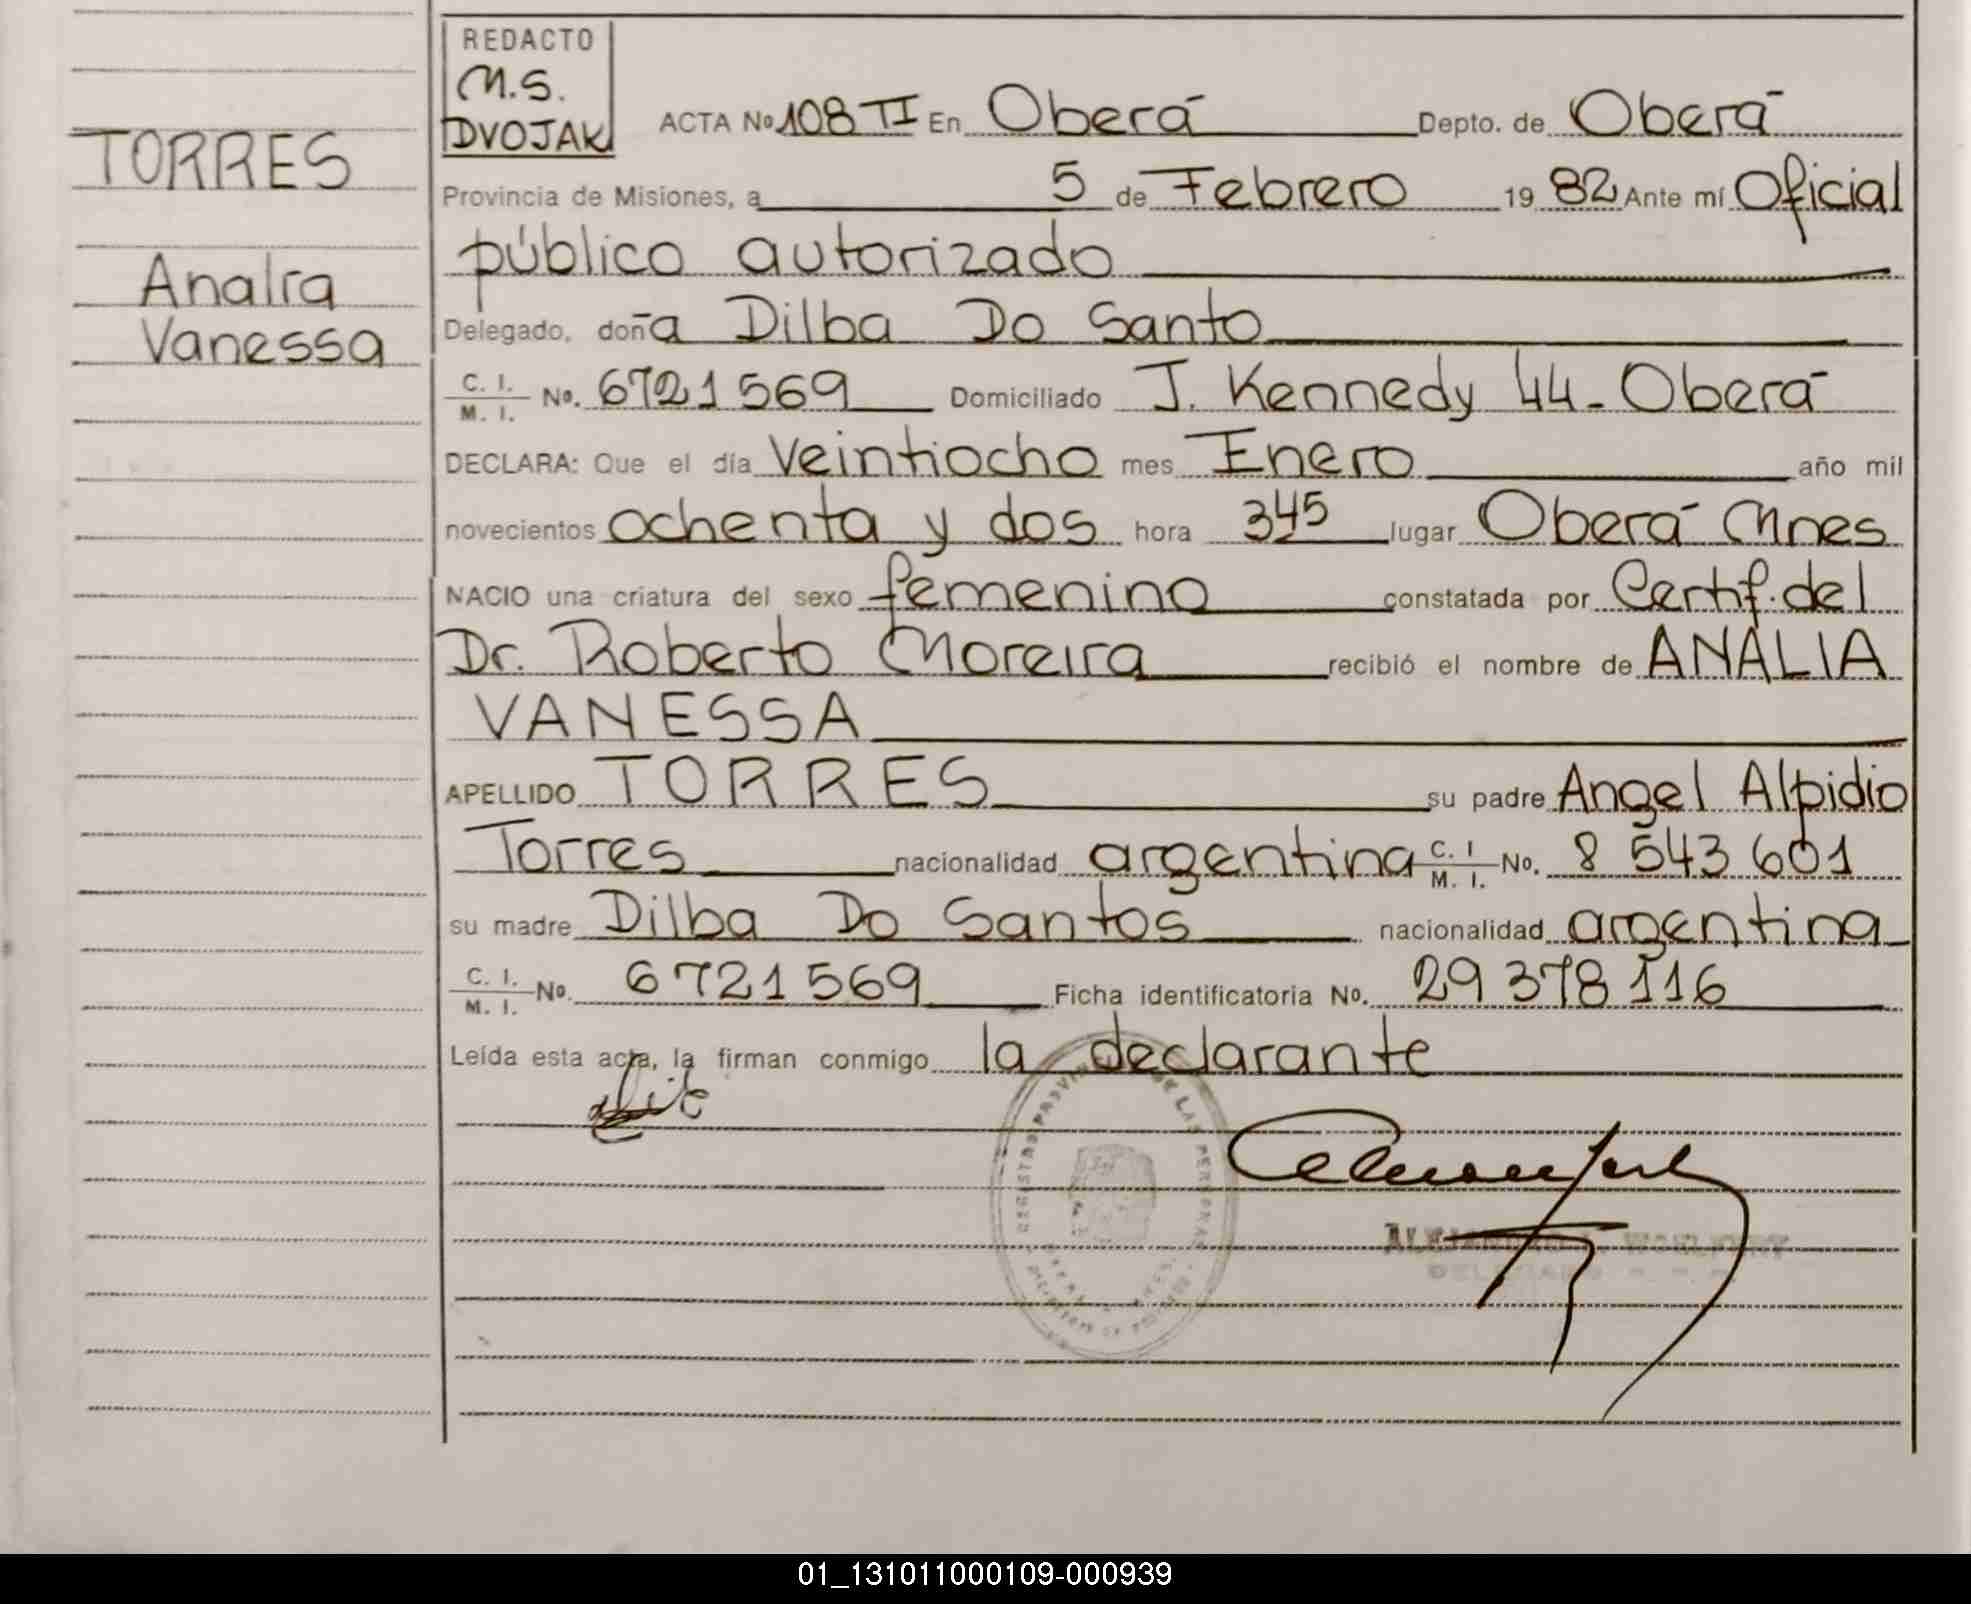 REDACTO
M.S.
DVOJAK
TORRES
Analía
Vanessa
ACTA Nº 108 TI En Oberá Depto. de Oberá
Provincia de Misiones, a 5 de Febrero 19 82 Ante mí Oficial
público autorizado
Delegado, doña Dilba Do Santo
C. I. / M. I. Nº. 6721569 Domiciliado J. Kennedy 44 - Oberá
DECLARA: Que el día Veintiocho mes Enero año mil
novecientos ochenta y dos hora 345 lugar Oberá Mnes
NACIO una criatura del sexo femenino constatada por Certif. del
Dr. Roberto Moreira recibió el nombre de ANALIA
VANESSA
APELLIDO TORRES su padre Angel Alpidio
Torres nacionalidad argentina C. I / M. I. No. 8 543 601
su madre Dilba Do Santos nacionalidad argentina
C. I. / M. I. Nº. 6721569 Ficha identificatoria No. 29 378 116
Leída esta acta, la firman conmigo la declarante
REGISTRO PROVINCIAL DE LAS PERSONAS
DELEGADO
01_131011000109-000939